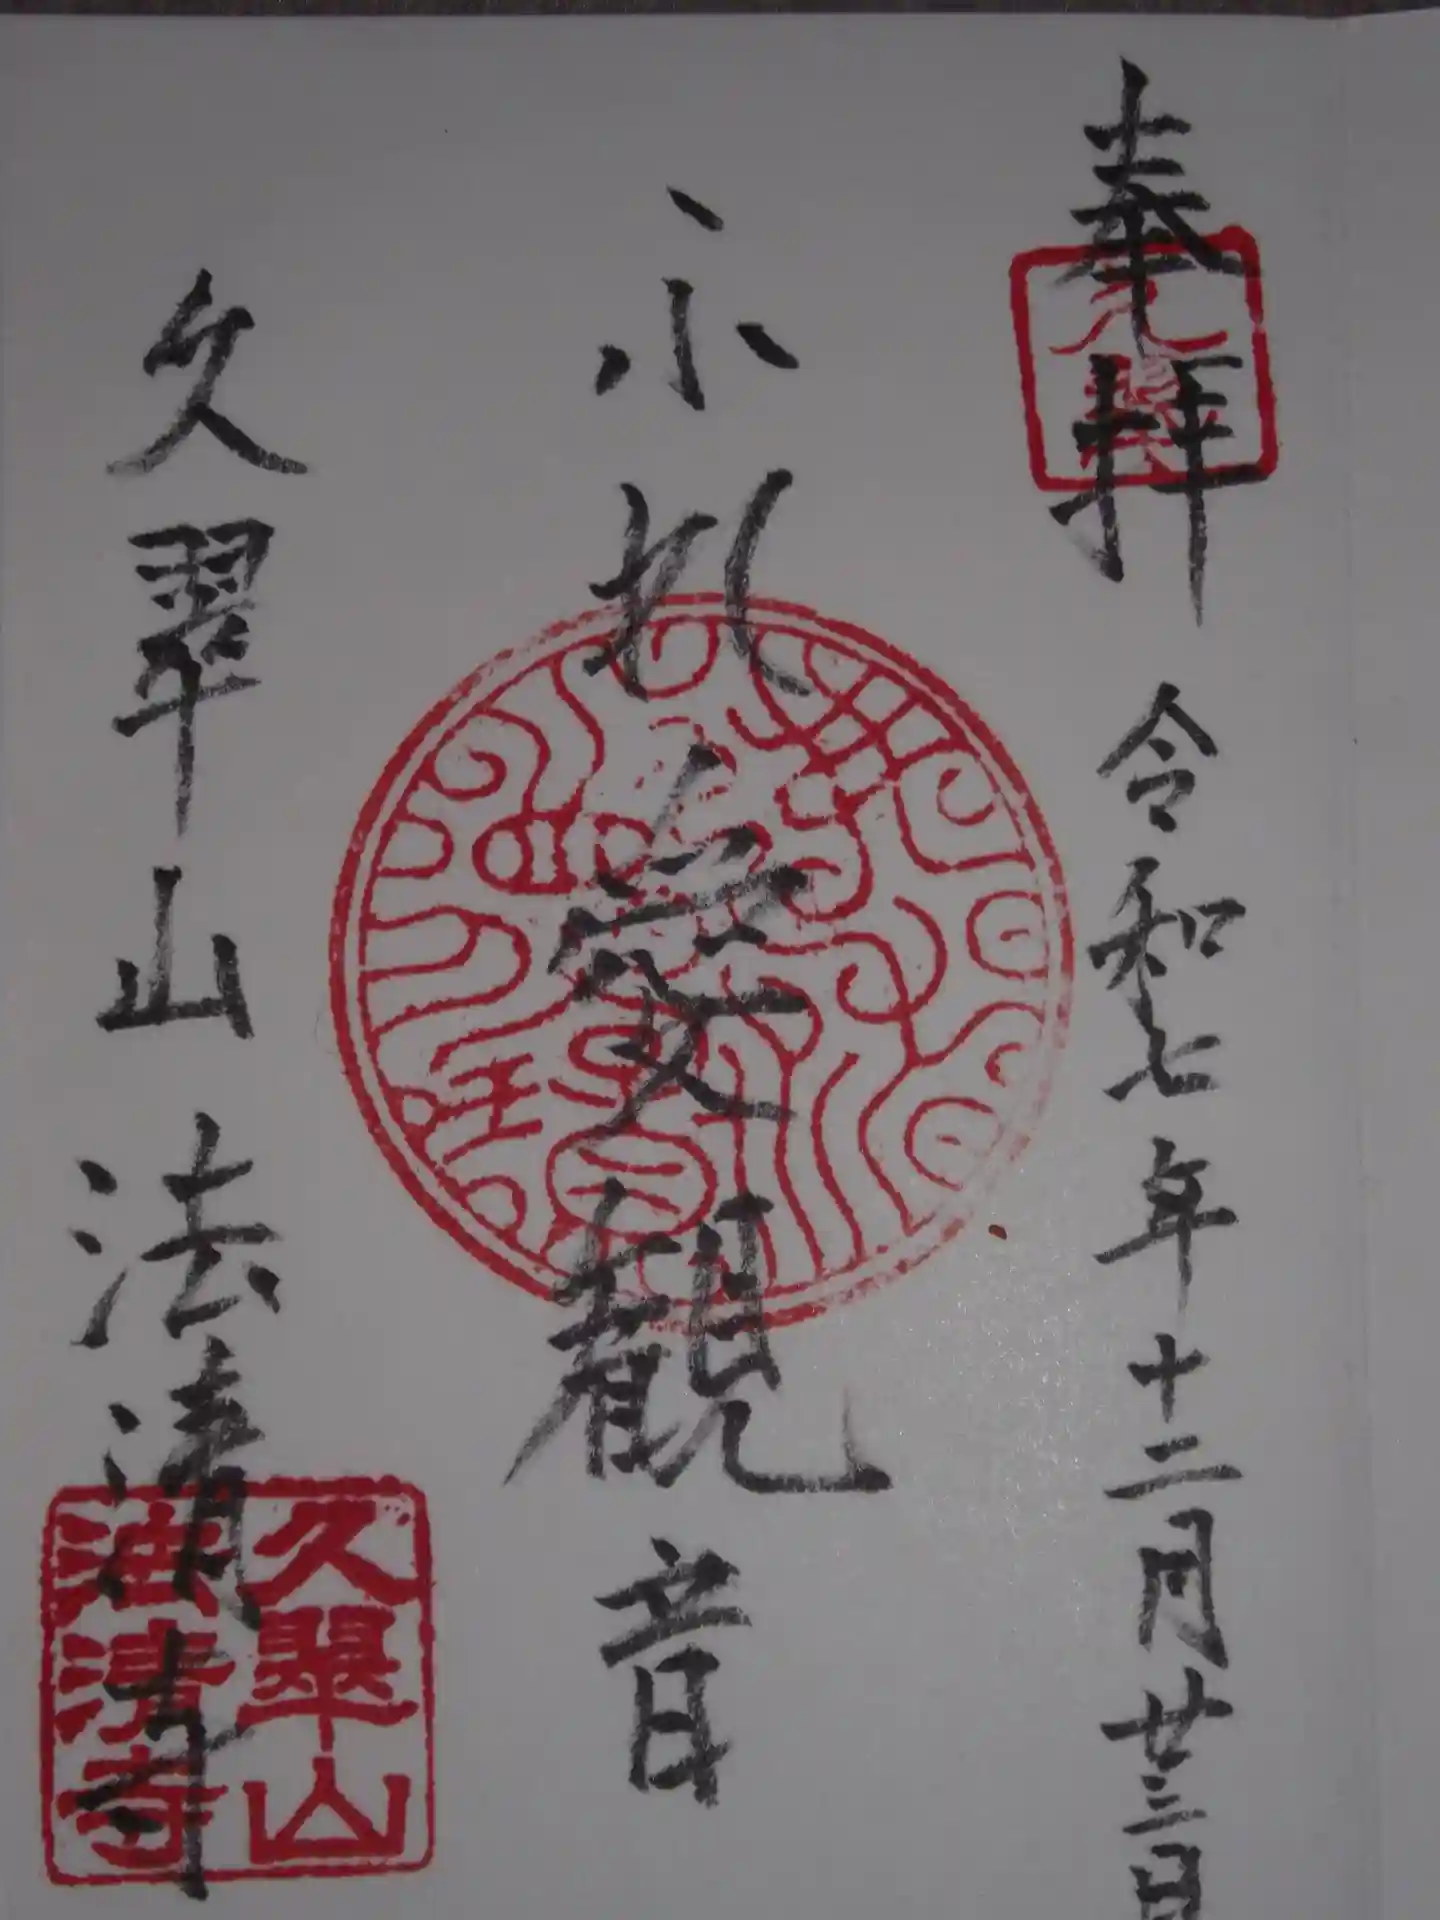 奉拝 令和七年十二月廿三日
ふれ愛観音
久翠山 法清寺
久翠山
法清寺